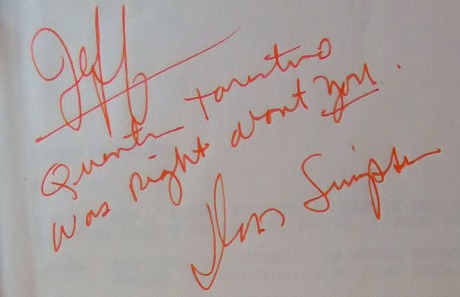 Jeff
Quentin Tarantino
was right about you.
Don Simpson